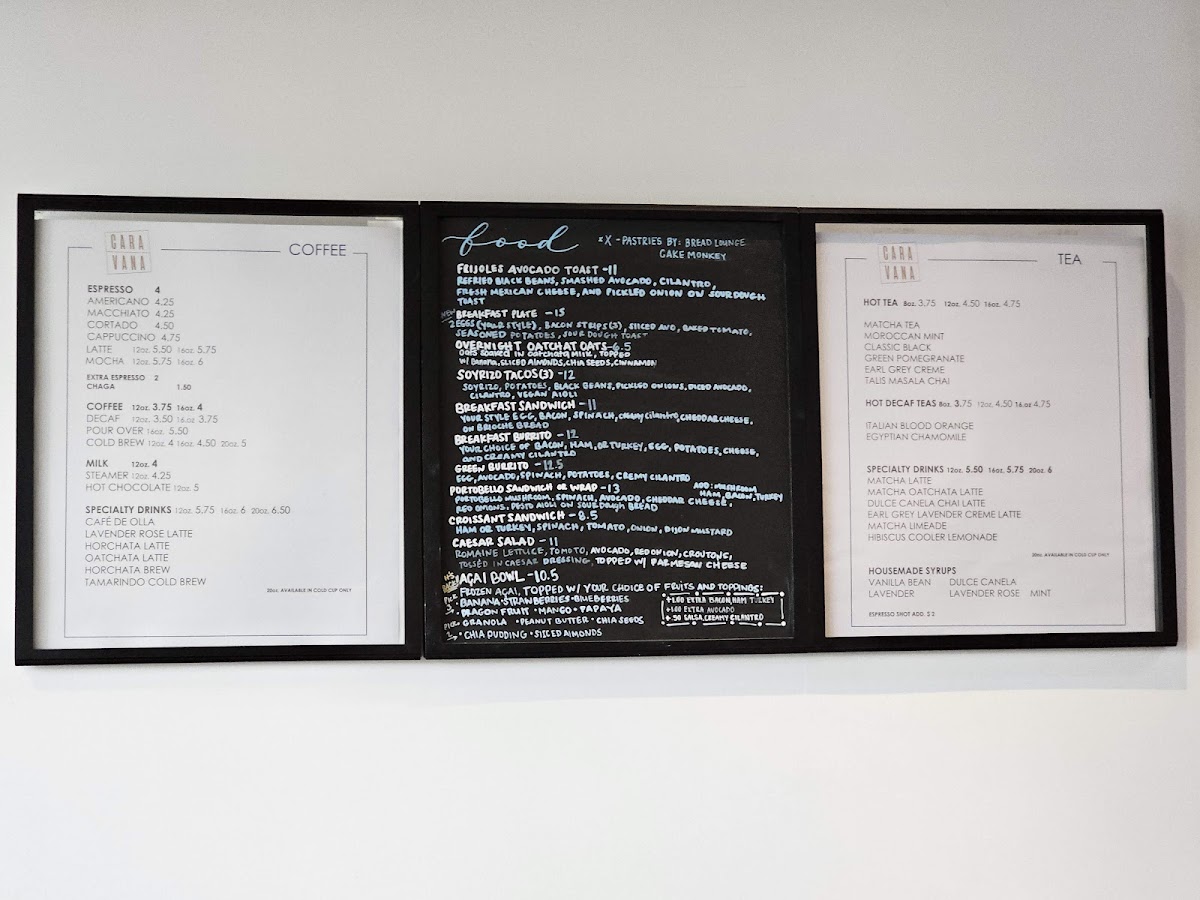 CARA
VANA
COFFEE
ESPRESSO 4
AMERICANO 4.25
MACCHIATO 4.25
CORTADO 4.50
CAPPUCCINO 4.75
LATTE 12oz. 5.50 16oz. 5.75
MOCHA 12oz. 5.75 16oz. 6
EXTRA ESPRESSO 2
CHAGA 1.50
COFFEE 12oz. 3.75 16oz. 4
DECAF 12oz. 3.50 16oz. 3.75
POUR OVER 16oz. 5.50
COLD BREW 12oz. 4 16oz. 4.50 20oz. 5
MILK 12oz. 4
STEAMER 12oz. 4.25
HOT CHOCOLATE 12oz. 5
SPECIALTY DRINKS 12oz. 5.75 16oz. 6 20oz. 6.50
CAFÉ DE OLLA
LAVENDER ROSE LATTE
HORCHATA LATTE
OATCHATA LATTE
HORCHATA BREW
TAMARINDO COLD BREW
20oz. AVAILABLE IN COLD CUP ONLY
food
X - PASTRIES BY: BREAD LOUNGE
CAKE MONKEY
FRIJOLES AVOCADO TOAST - 11
REFRIED BLACK BEANS, SMASHED AVOCADO, CILANTRO,
FRESH MEXICAN CHEESE, AND PICKLED ONION ON SOURDOUGH
TOAST
NEW BREAKFAST PLATE - 15
2 EGGS (YOUR STYLE), BACON STRIPS (3), SLICED AVO, BAKED TOMATO,
SEASONED POTATOES, SOURDOUGH TOAST
OVERNIGHT OATCHAT OATS - 6.5
OATS SOAKED IN OATCHATA MILK, TOPPED
W/ BANANA, SLICED ALMONDS, CHIA SEEDS, CINNAMON
SOYRIZO TACOS (3) - 12
SOYRIZO, POTATOES, BLACK BEANS, PICKLED ONIONS, DICED AVOCADO,
CILANTRO, VEGAN AIOLI
BREAKFAST SANDWICH - 11
YOUR STYLE EGG, BACON, SPINACH, CREAMY CILANTRO, CHEDDAR CHEESE,
ON BRIOCHE BREAD
BREAKFAST BURRITO - 12
YOUR CHOICE OF BACON, HAM, OR TURKEY, EGG, POTATOES, CHEESE,
AND CREAMY CILANTRO
GREEN BURRITO - 12.5
EGG, AVOCADO, SPINACH, POTATOES, CREMY CILANTRO
PORTOBELLO SANDWICH OR WRAP - 13
ADD: MUSHROOM,
HAM, BACON, TURKEY
PORTOBELLO MUSHROOM, SPINACH, AVOCADO, CHEDDAR CHEESE,
RED ONIONS, PESTO AIOLI ON SOURDOUGH BREAD
CROISSANT SANDWICH - 8.5
HAM OR TURKEY, SPINACH, TOMATO, ONION, DIJON MUSTARD
CAESAR SALAD - 11
ROMAINE LETTUCE, TOMOTO, AVOCADO, RED ONION, CROUTONS,
TOSSED IN CAESAR DRESSING, TOPPED W/ PARMESON CHEESE
AÇAI BOWL - 10.5
FROZEN AÇAI, TOPPED W/ YOUR CHOICE OF FRUITS AND TOPPINGS:
PICK 3 • BANANA • STRANBERRIES • BLUEBERRIES
• DRAGON FRUIT • MANGO • PAPAYA
PICK 2 • GRANOLA • PEANUT BUTTER • CHIA SEEDS
• CHIA PUDDING • SLICED ALMONDS
EXTRA BACON, HAM TURKEY
EXTRA AVOCADO
+ .50 SALSA, CREAMY CILANTRO
CARA
VANA
TEA
HOT TEA 8oz. 3.75 12oz. 4.50 16oz. 4.75
MATCHA TEA
MOROCCAN MINT
CLASSIC BLACK
GREEN POMEGRANATE
EARL GREY CREME
TALIS MASALA CHAI
HOT DECAF TEAS 8oz. 3.75 12oz. 4.50 16.oz 4.75
ITALIAN BLOOD ORANGE
EGYPTIAN CHAMOMILE
SPECIALTY DRINKS 12oz. 5.50 16oz. 5.75 20oz. 6
MATCHA LATTE
MATCHA OATCHATA LATTE
DULCE CANELA CHAI LATTE
EARL GREY LAVENDER CREME LATTE
MATCHA LIMEADE
HIBISCUS COOLER LEMONADE
20oz. AVAILABLE IN COLD CUP ONLY
HOUSEMADE SYRUPS
VANILLA BEAN DULCE CANELA
LAVENDER LAVENDER ROSE MINT
ESPRESSO SHOT ADD. $ 2